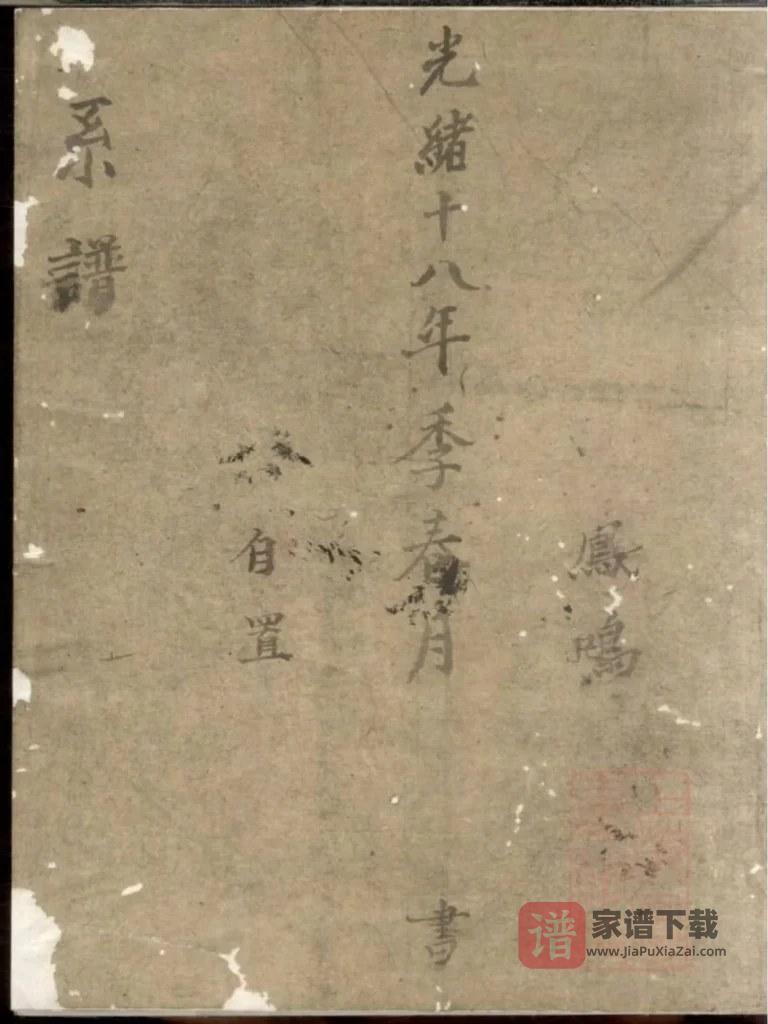 鳳鳴
光緒十八年季春月 書
自置
系譜
谱 家谱下载
www.JiaPuXiaZai.com